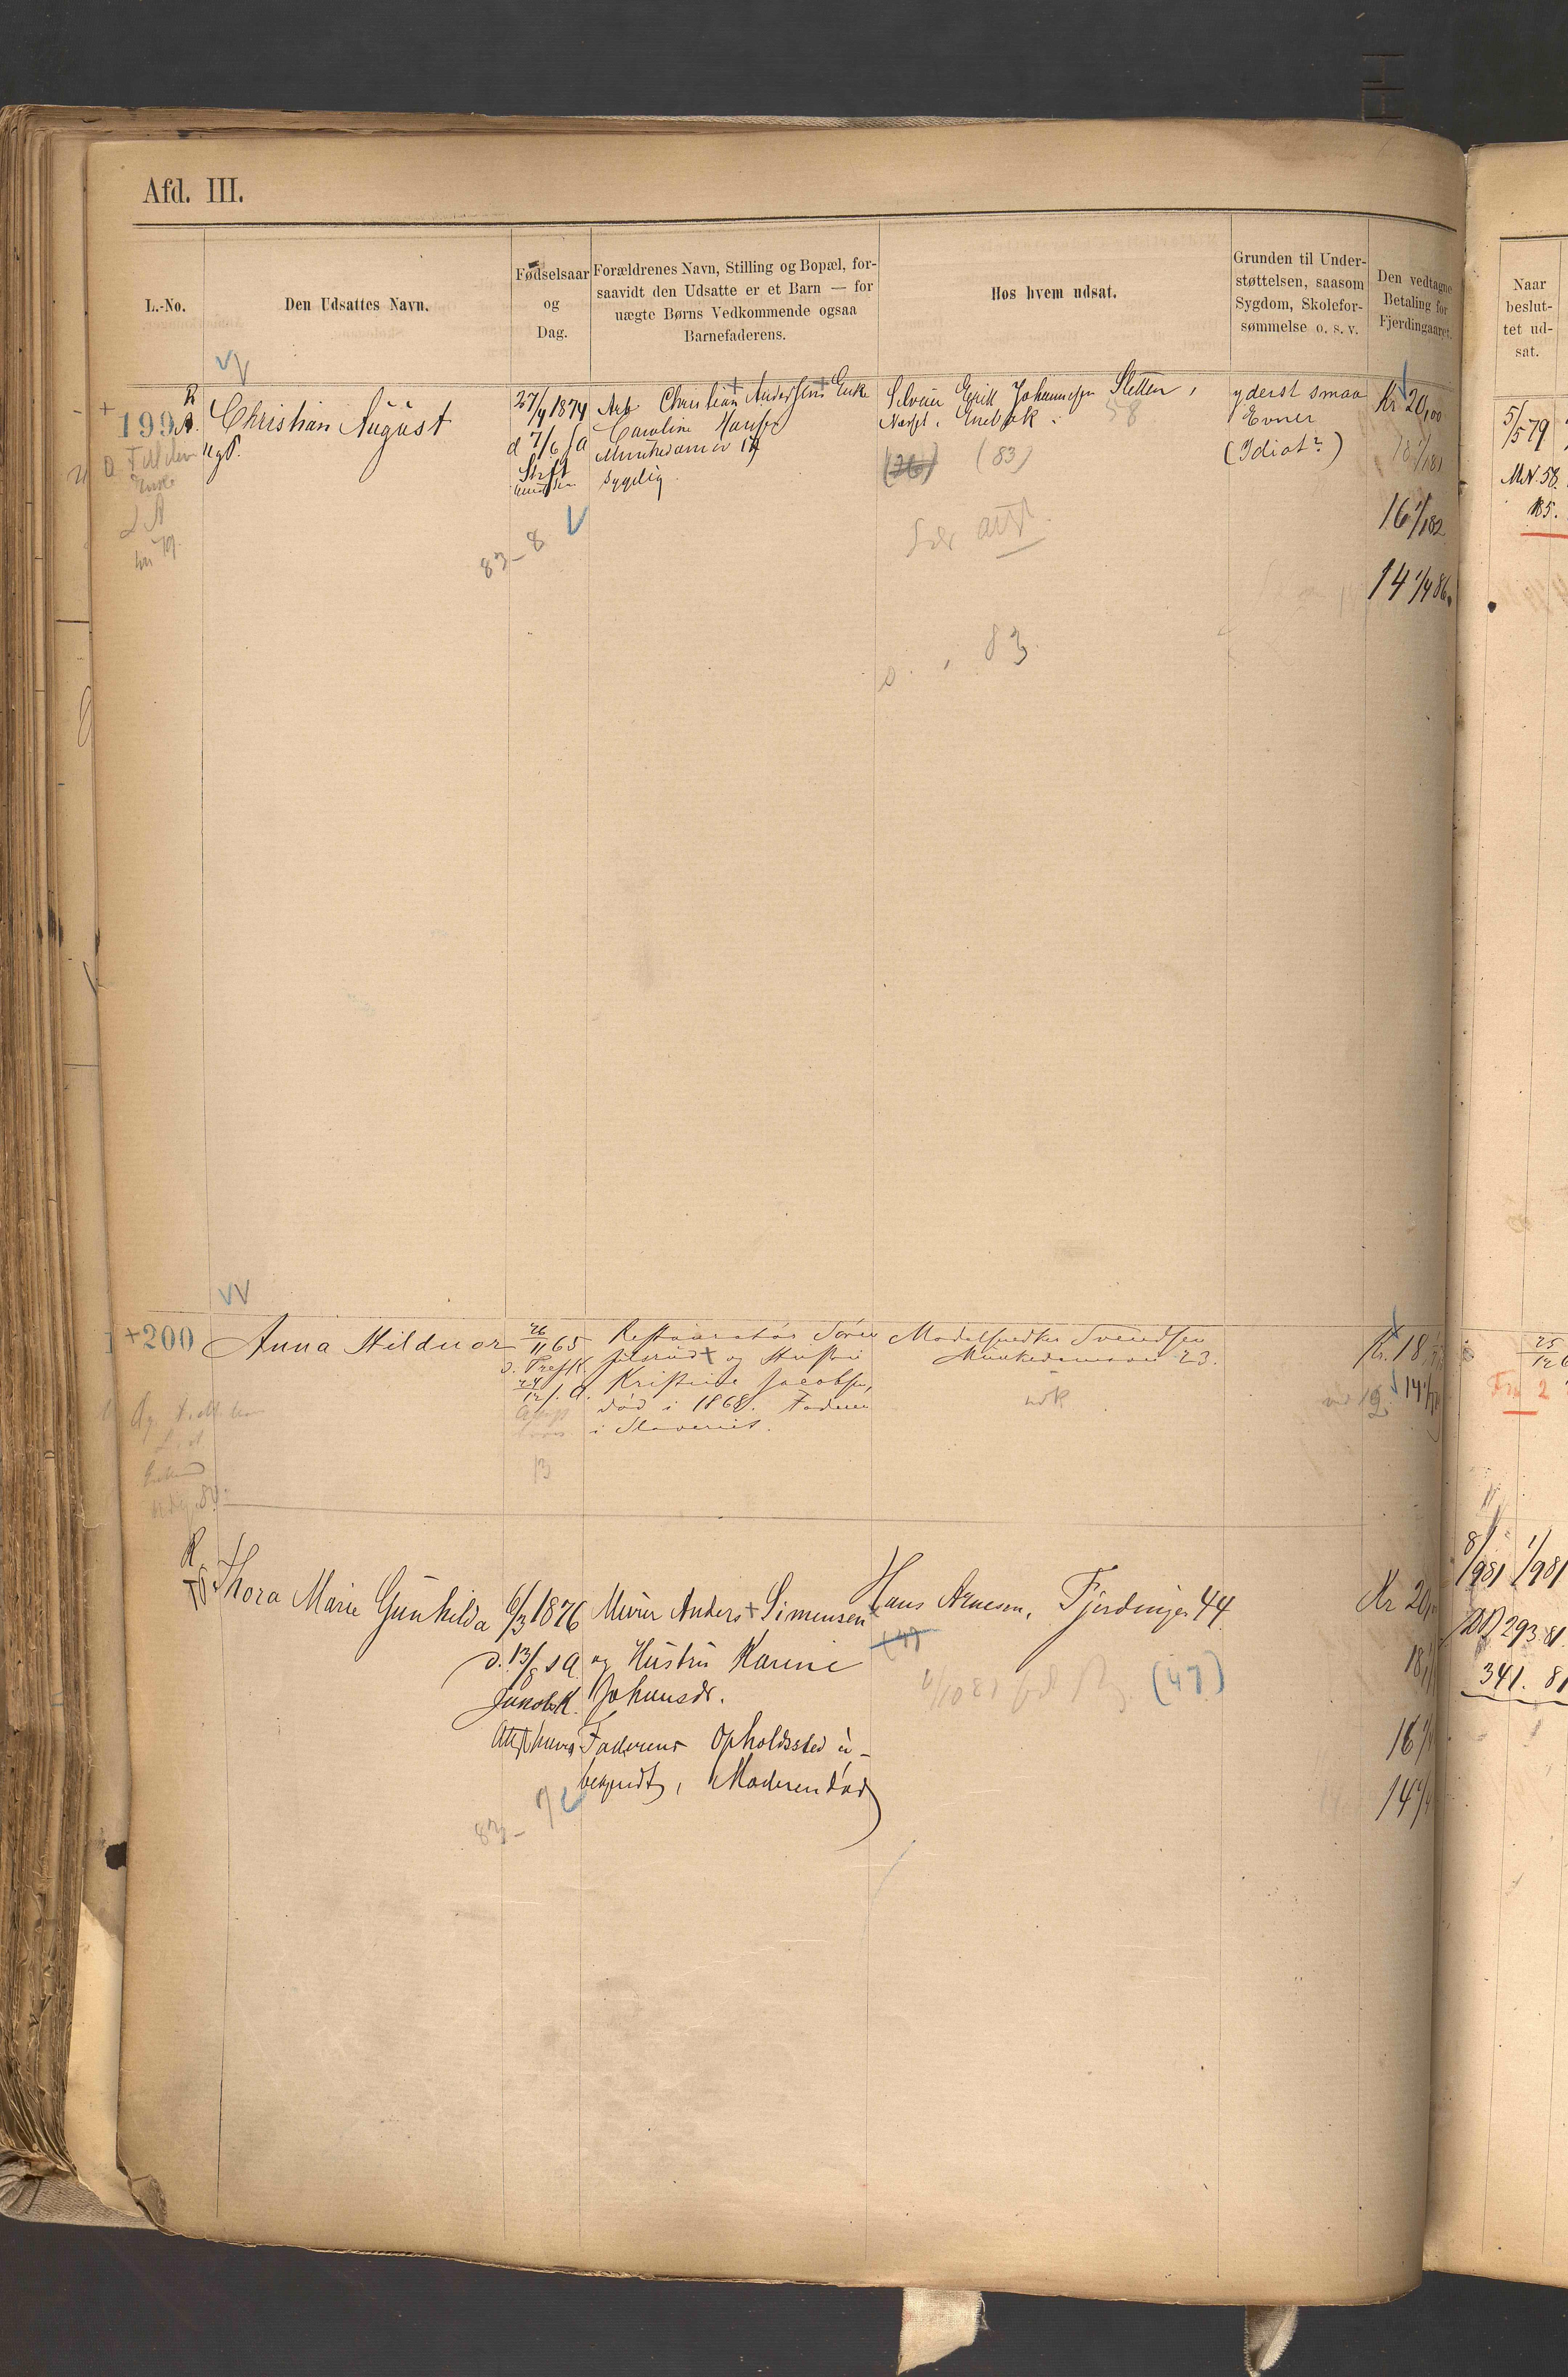 Afd. III.
L.-No.
Den Udsattes Navn.
Fødselsaar
og
Dag.
Forældrenes Navn, Stilling og Bopæl, for-
saavidt den Udsatte er et Barn — for
uægte Børns Vedkommende ogsaa
Barnefaderens.
Hos hvem udsat.
Grunden til Under-
støttelsen, saasom
Sygdom, Skolefor-
sømmelse o. s. v.
Den vedtagne
Betaling for
Fjerdingaaret.
Naar
beslut-
tet ud-
sat.
R
+ 199 A.
Christian August
27/4 1874
d 7/6 s a
Arb Christian Andersens Enke
Caroline Hansen
Munkedamsv 17
sygelig
Selveier Erik Johannesen Sletten,
Enebak.
58
(26) (83)
yderst smaa
Evner
(Idiot?)
Kr 20,00
18 1/1 81
16 1/1 82
14 1/4 86
5/5 79
MN. 58.
85.
83-8
83
+200
Anna Hildu or
26/11 65
24/12 s. a.
Restauratør Søren
og Hustru
Kristine Jacobsen,
død i 1868. Faderen
i Slaveriet.
Modelsnedker Svendsen
Munkedamsvei 23.
Kr. 18
14 1/1
25/12
Fra 2
13
R
Thora Marie Gunhilda
6/3 1876
d. 13/8 s a
Jakobs K.
Murer Anders Simensen
og Hustru Karine
Johansdr.
Faderens Opholdssted u-
bekjendt, Moderen død
Hans Arnesen, Fjerdingen 44
(47)
(47)
Kr 20,
18 1/1
16 1/1
14 1/4
8/9 81 1/9 81
293. 81.
341. 81
83-9